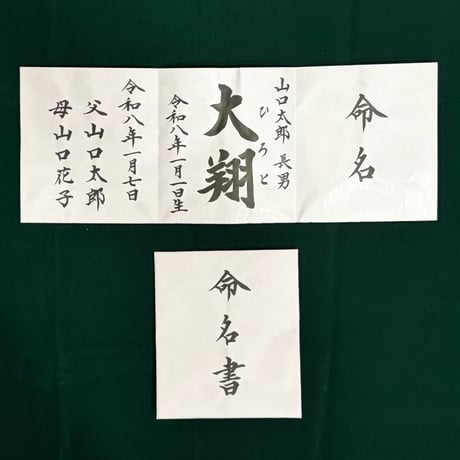 命名
山口太郎 長男
ひろと
大翔
令和八年一月一日生
令和八年一月七日
父山口太郎
母山口花子
命名書